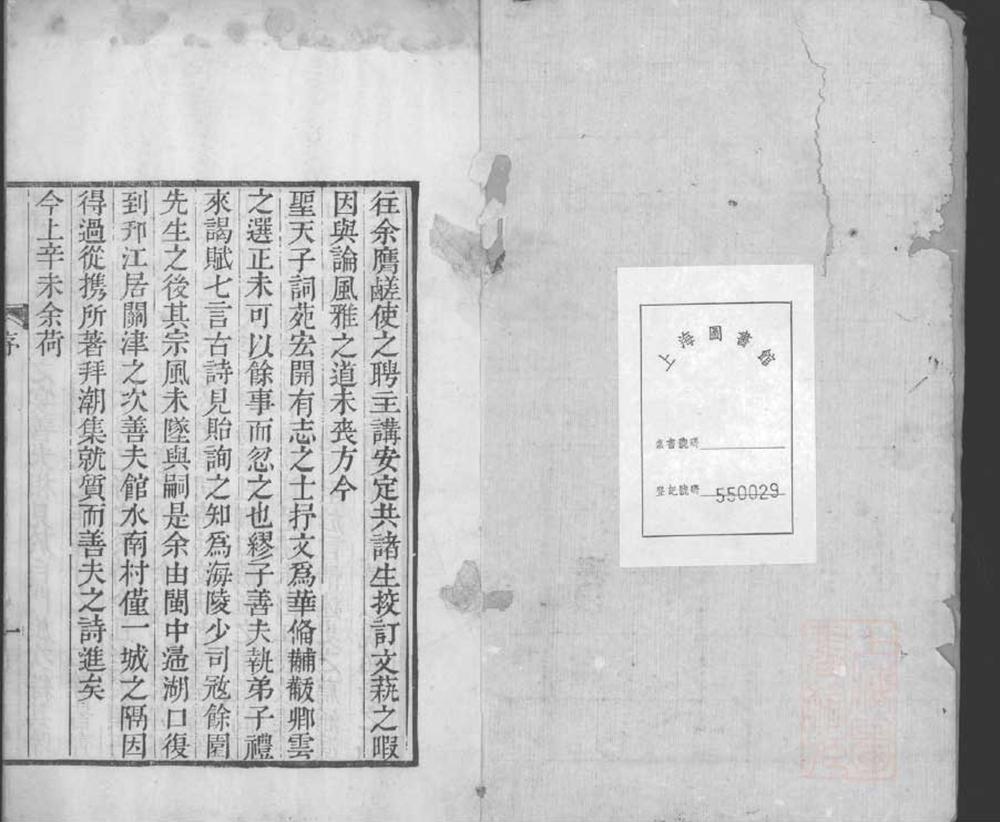 上海圖書館
索書號碼
登記號碼 550029
往余膺鹾使之聘主講安定共諸生挍訂文蓺之暇
因與論風雅之道未喪方今
聖天子詞苑宏開有志之士抒文爲華脩黼黻卿雲
之選正未可以餘事而忽之也繆子善夫執弟子禮
來謁賦七言古詩見貽詢之知爲海陵少司寇餘園
先生之後其宗風未墜與嗣是余由閩中湖口復
到邗江居關津之次善夫館水南村僅一城之隔因
得過從携所著拜潮集就質而善夫之詩進矣
今上辛未余荷
序
一